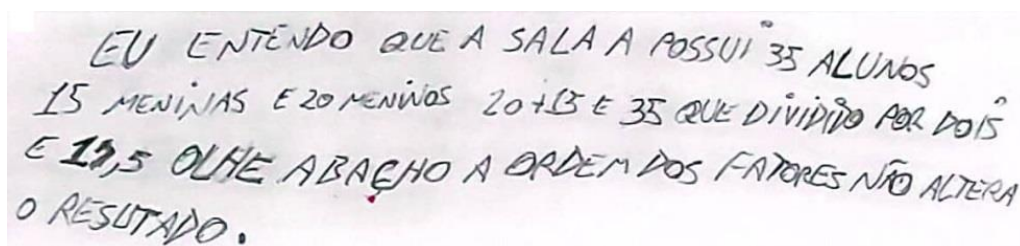 EU ENTENDO QUE A SALA A POSSUI 35 ALUNOS
15 MENINAS E 20 MENINOS 20+15 E 35 QUE DIVIDIDO POR DOIS
E 17,5 OLHE ABAÇHO A ORDEM DOS FATORES NÃO ALTERA
O RESUTADO.